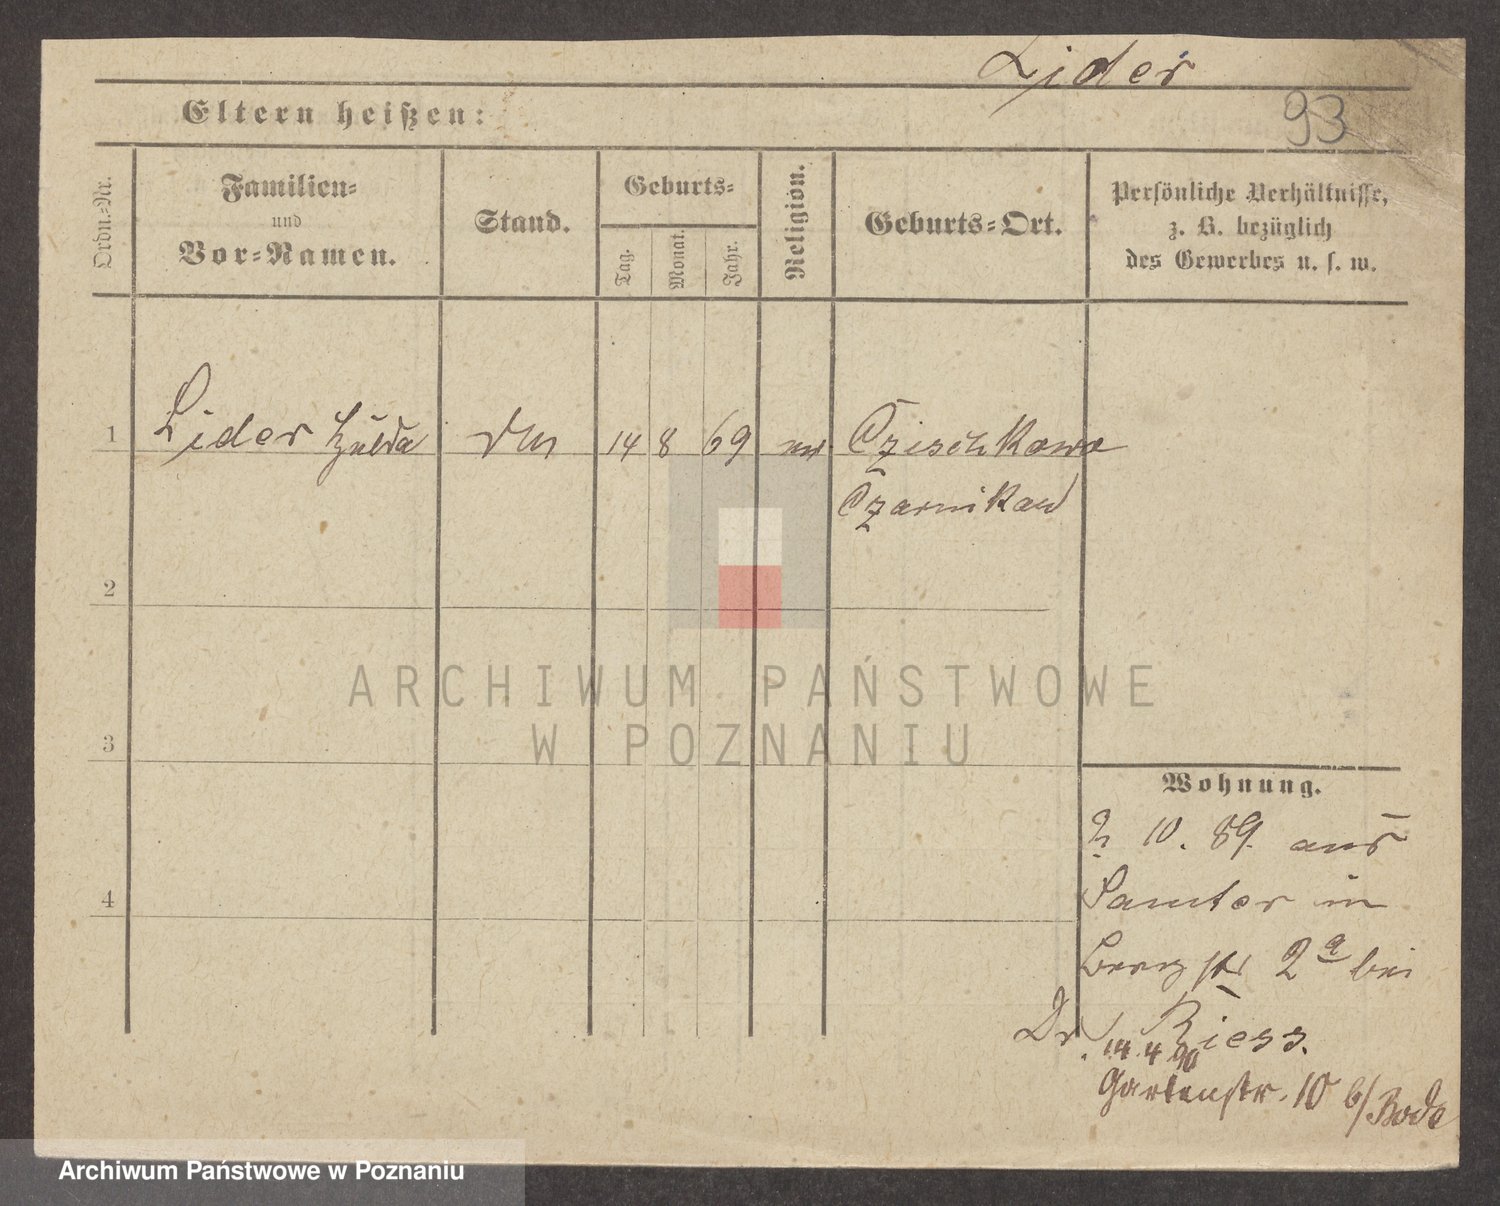 Lider
93
Eltern heißen:
Ordn.-Nr.
Familien-
und
Vor-Namen.
Stand.
Geburts-
Tag.
Monat.
Jahr.
Religion.
Geburts-Ort.
Persönliche Verhältnisse,
z. B. bezüglich
des Gewerbes u. s. w.
1 Lider Hulda 14 8 69 Czischkowo
Czarnikau
2
3
4
ARCHIWUM PAŃSTWOWE
W POZNANIU
Wohnung.
10. 89. aus
Samter in
Bergstr 2a bei
Dr. Riess.
14.4.90
Gartenstr. 10 b/ Bode
Archiwum Państwowe w Poznaniu